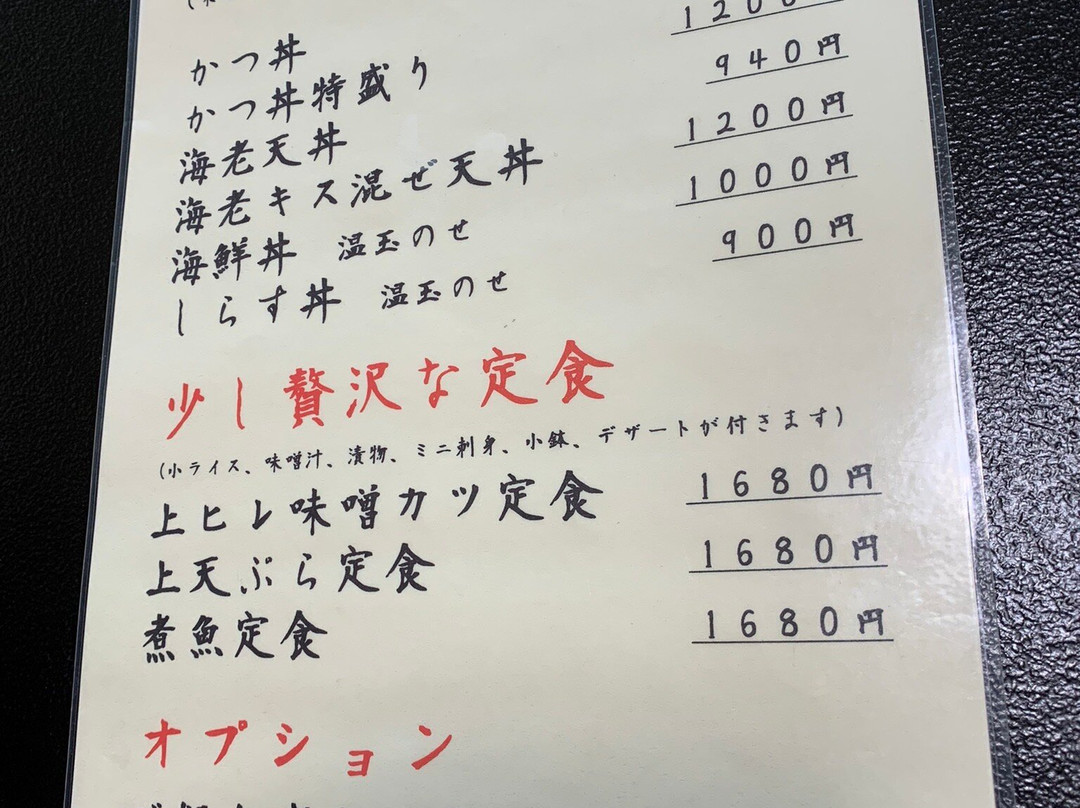 かつ丼
かつ丼特盛り 1200
海老天丼 940円
海老キス混ぜ天丼 1200円
海鮮丼 温玉のせ 1000円
しらす丼 温玉のせ 900円
少し贅沢な定食
(小ライス、味噌汁、漬物、ミニ刺身、小鉢、デザートが付きます)
上ヒレ味噌カツ定食 1680円
上天ぷら定食 1680円
煮魚定食 1680円
オプション